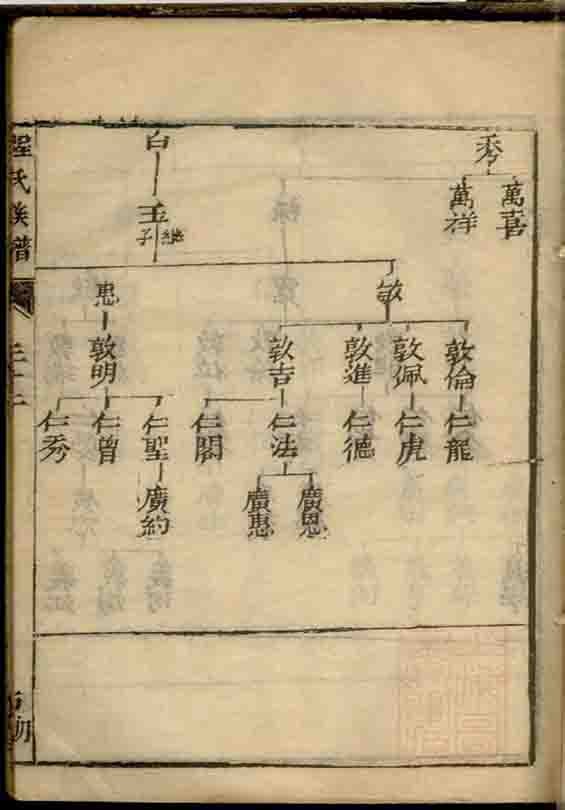 秀
白
萬喜
萬祥
玉
繼子
敏
敦倫
敦佩
敦進
敦吉
敦明
仁龍
仁虎
仁德
仁法
仁閣
仁聖
仁曾
仁秀
廣恩
廣惠
廣約
氏族譜